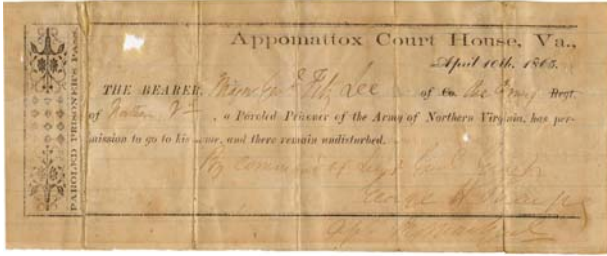 PAROLED PRISONER'S PASS.
Appomattox Court House, Va.,
April 10th, 1865.
THE BEARER, Major Gen'l Fitz Lee of Co. the Army Regt.
of Northern Va , a Paroled Prisoner of the Army of Northern Virginia, has per-
mission to go to his home, and there remain undisturbed.
By command of Lieut Genl Grant
George H. Sharpe